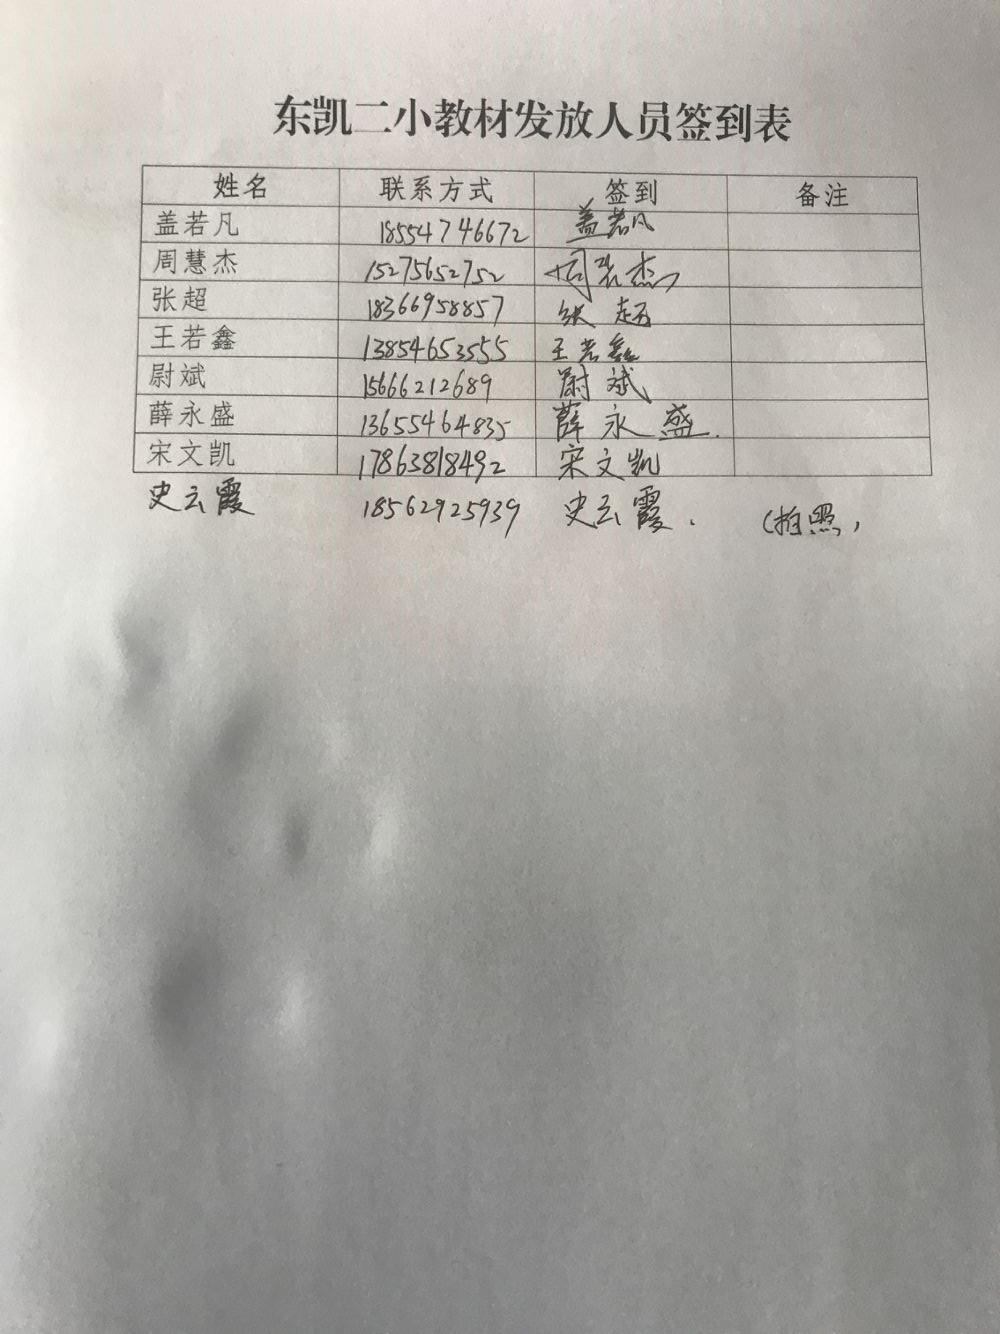 东凯二小教材发放人员签到表
姓名 联系方式 签到 备注
盖若凡 18554746672 盖若凡
周慧杰 15275652752 周慧杰
张超 18366958857 张超
王若鑫 13854653555 王若鑫
尉斌 15666212689 尉斌
薛永盛 13655464835 薛永盛.
宋文凯 17863818492 宋文凯
史云霞 18562925939 史云霞. (拍照)